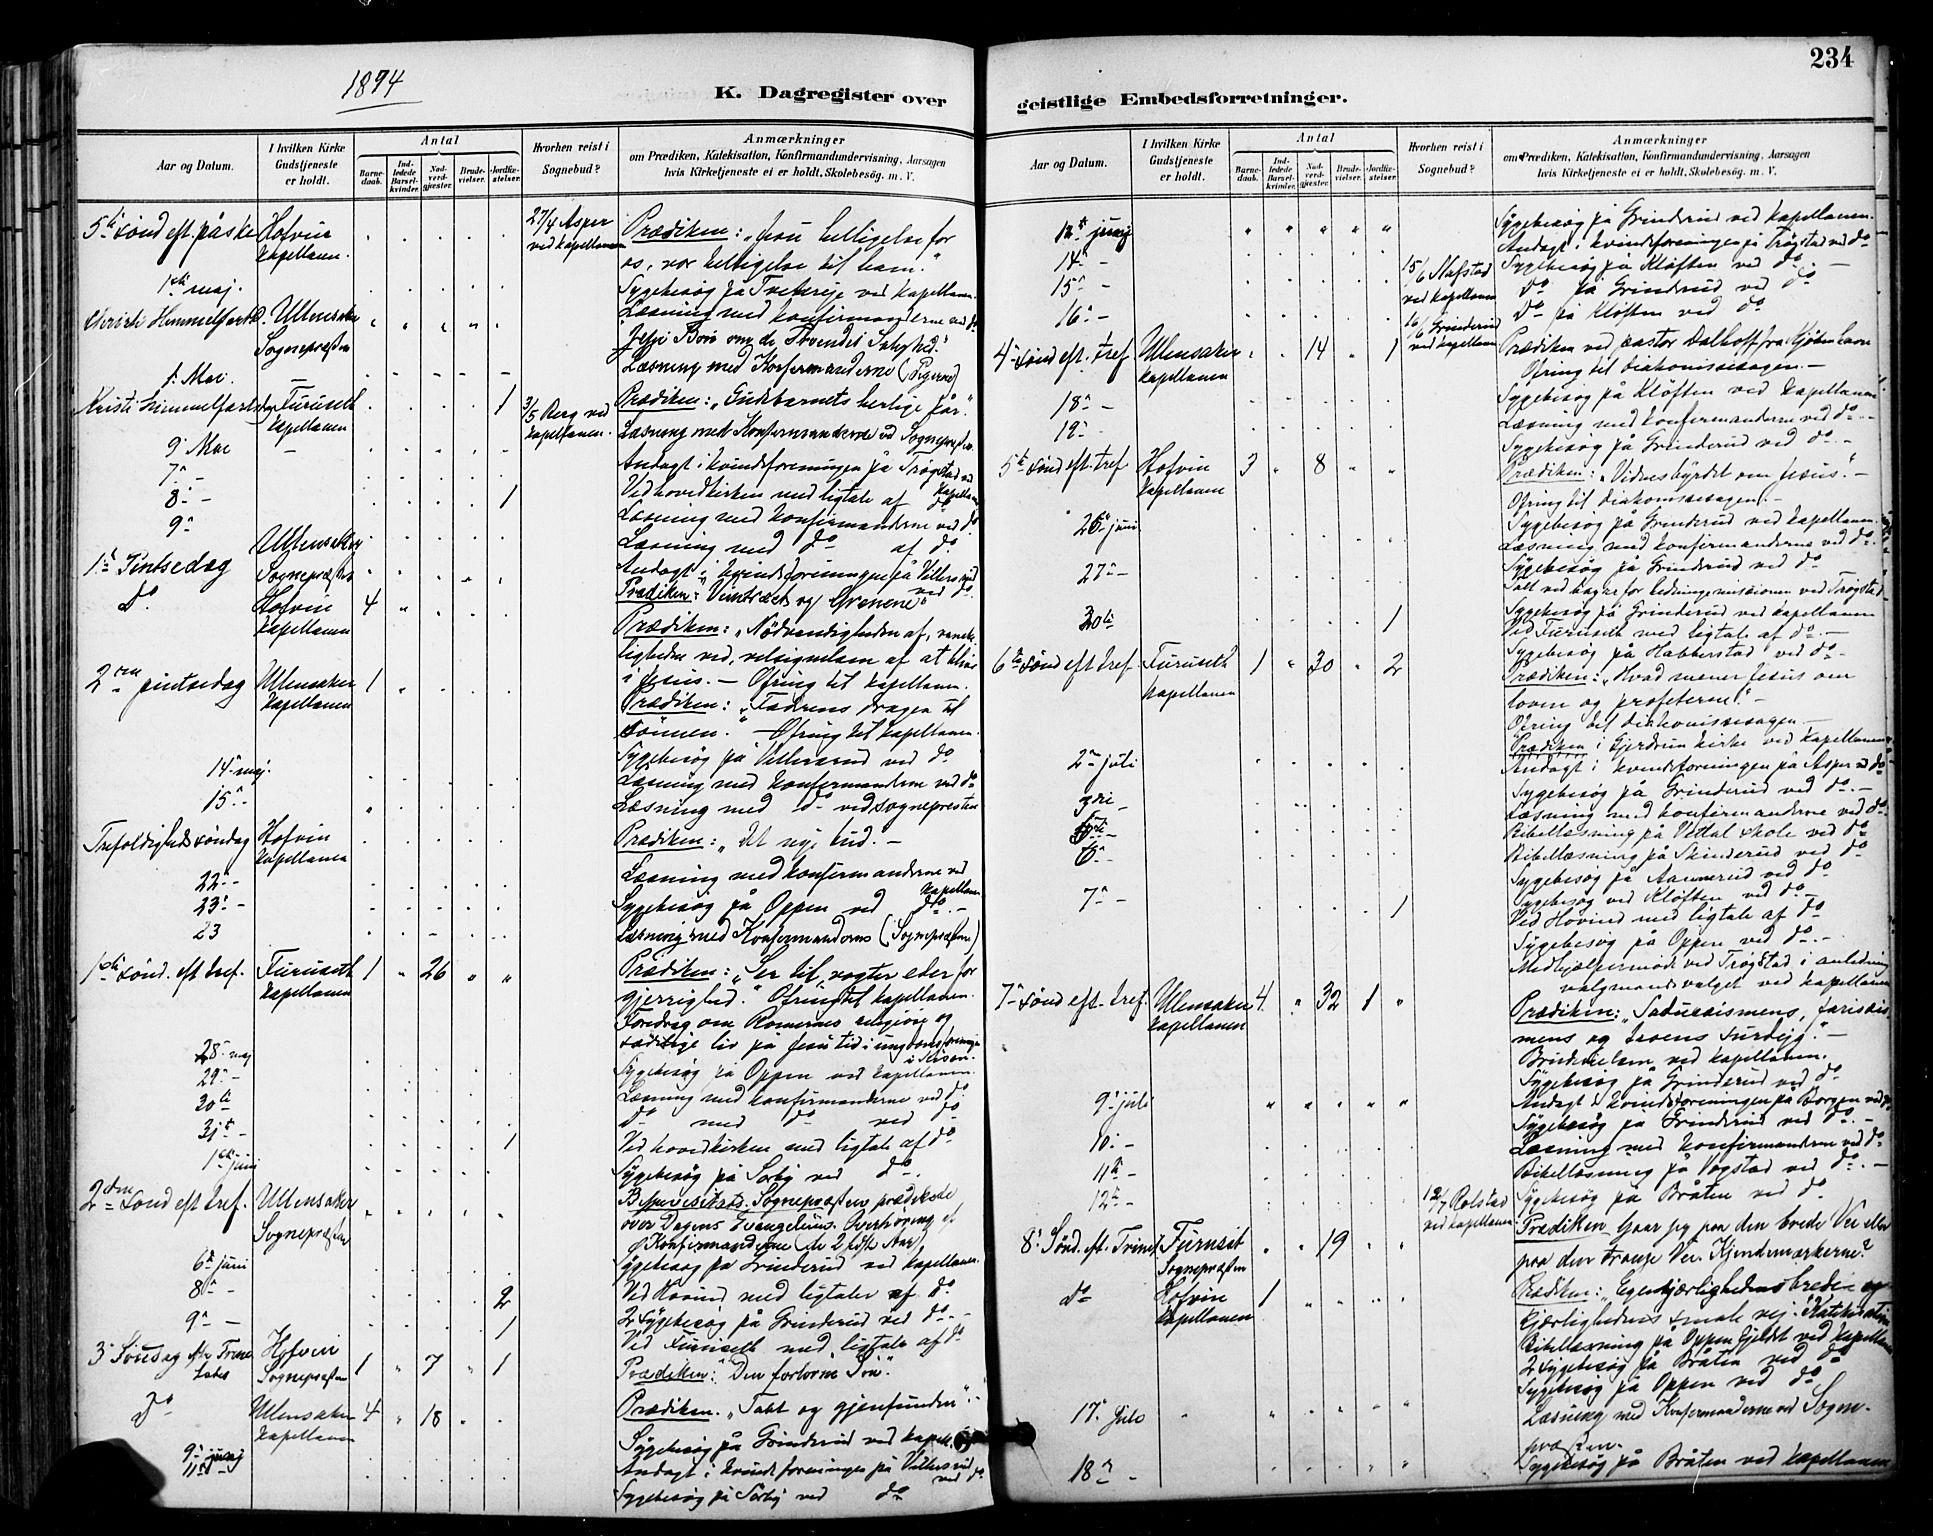 1894
K. Dagregister over
Aar og Datum.
I hvilken Kirke Gudstjeneste er holdt.
Antal
Barnedaab.
Indledede Barselkvinder.
Nadverdgjester.
Brudevielser.
Jordfæstelser.
Hvorhen reist i Sognebud?
Anmærkninger
om Prædiken, Katekisation, Konfirmandundervisning, Aarsagen
hvis Kirketjeneste ei er holdt. Skolebesøg. m. V.
5te sönd eft. påske Hofvin 27/4 Asper Prædiken: „Jesu helligelse for
kapellanen. ved kapellanen os, vor helligelse til ham."
1ste maj. Sygebesøg på ved kapellanen.
Christi Himmelfartsd. Ullensaker Læsning med konfirmanderne ved do
Sognepræsten
1. Mai. Læsning med Konfirmanderne (Pigerne)
Kristi himmelfartsdag Furuseth 1 3/5 Berg ved Prædiken: „Gudsbarnets herlige kår."
kapellanen kapellanen. Læsning med Konfirmanderne ved Sognepræsten
9 Mai
7 - Andagt i kvindeforeningen på Trøgstad ved kapellanen
8 - 1 Ved hovedkirken med ligtale af do
9 - Læsning med konfirmanderne ved do
Læsning med do af do
1ste Pintsedag Ullensaker Andagt i kvindeforeningen på Villersrud ved do
Sognepræsten Prædiken: Vintræet og Grenene.
Do Hofvin 4 Prædiken: „Nödvendigheden af, vanske-
kapellanen ligheden ved, velsignelsen af at blive
i Jesus. - Ofring til kapellanen.
2den pintsedag Ullensaker 1 Prædiken: „Faderens dragen til
kapellanen Sönnen." - Ofring til kapellanen.
14 maj. Sygebesøg på Villersrud ved do
15 - Læsning med konfirmanderne ved do
Læsning med do ved sognepresten
Trefoldighedssöndag Hofvin Prædiken: „Det nye bud. -
kapellanen
22 - Læsning med konfirmanderne ved kapellanen
23 - Sygebesøg på Oppen ved do. -
23 Læsning med Konfirmanderne (Sognepræsten)
1ste sönd. eft. tref. Furuseth 1 26 Prædiken: „Ser til, vogter eder for
kapellanen gjerrighed." Ofring til kapellanen.
Foredrag om Romernes religiøse og
sædelige liv på Jesu tid i ungdomsforeningen
28 maj Sygebesøg på Oppen ved kapellanen.
29 - Læsning med konfirmanderne ved do
30te do med do ved do
31te -
1ste juni 1 Ved hovedkirken med ligtale af do
Sygebesøg på Sørby ved do.
2den Sönd eft tref. Ullensaker Bispevisitats. Sognepræsten prædikede
Sognepræsten over Dagens Evangelium. Overhøring af
Konfirmanderne (de 2 sidste Aar)
6te juni Sygebesøg på Grinderud ved kapellanen.
8 - 2 Ved Hovind med ligtaler af do
9 - 2 Sygebesøg på Grinderud ved do. -
1 Ved Furuseth med ligtale af do
3 Söndag efter Trini- Hofvin 1 7 1 Prædiken: Den fortorne Søn".
tatis Sognepræsten
Do Ullensaker 4 18 Prædiken. „Tabt og gjenfunden"
kapellanen
9 junij Sygebesøg på Grinderud ved kapell.
11te Andagt i kvindeforeningen på Villersrud ved do
Sygebesøg på Sørby ved do
234
geistlige Embedsforretninger.
Aar og Datum.
I hvilken Kirke Gudstjeneste er holdt.
Antal
Barnedaab.
Indledede Barselkvinder.
Nadverdgjester.
Brudevielser.
Jordfæstelser.
Hvorhen reist i Sognebud?
Anmærkninger
om Prædiken, Katekisation, Konfirmandundervisning, Aarsagen
hvis Kirketjeneste ei er holdt. Skolebesøg. m. V.
12te junij Sygebesøg på Grinderud ved kapellanen.
Andagt i kvindeforeningen på Trøgstad ved do
14 - 15/6 Nafstad Sygebesøg på Kløften ved do. -
15 - ved kapellanen do på Grinderud ved do
16 - 16/6 Grinderud do på Kløften ved do
4 Sönd eft. tref. Ullensaker 14 1 ved kapellanen Prædiken ved pastor Dalhoff fra Kjöbenhavn
kapellanen Ofring til diakonissesagen. -
18 - Sygebesøg på Kløften ved kapellanen
19 - Læsning med konfirmanderne ved do. -
Sygebesøg på Grinderud ved do. -
5te sönd eft. tref. Hofvin 3 8 Prædiken: „Vidnesbyrdet om Jesus". -
kapellanen Ofring til diakonissesagen. -
26 juni Sygebesøg på Grinderud ved kapellanen.
Læsning med konfirmanderne ved do.
27 - Sygebesøg på Grinderud ved do
30te 1 Sygebesøg på Grinderud ved kapellanen
Ved Furuseth med ligtale af do. -
Sygebesøg på Habberstad ved do -
6te sönd eft tref. Furuseth 1 30 2 Prædiken: „Hvad mener Jesus om
kapellanen loven og profeterne". -
Ofring til diakonissesagen -
Prædiken i Gjerdrum kirke ved kapellanen
2 juli Andagt i kvindeforeningen på Asper ved do
3die - Sygebesøg på Grinderud ved do. -
Læsning med konfirmanderne ved do
Bibellæsning på Vittal skole ved do
6 - Bibellæsning på Skinderud ved do
Sygebesøg på Aannerud ved do
7 - Sygebesøg ved Kløften ved do -
1 Ved Hovind med ligtale af do
Sygebesøg på Oppen ved do. -
Medhjælpermøde ved Trøgstad i anledning
valgmandsvalget ved kapellanen
7 sönd eft. tref. Ullensaker 4 32 1 Prædiken: „Saducæismens, farisæis-
kapellanen mens og troens . -
Brudevielsen ved kapellanen.
Sygebesøg på Grinderud ved do
9 juli Andagt i kvindeforeningen på Borgen ved do
10 - Sygebesøg på Grinderud ved do. -
Læsning med konfirmanderne ved do
11te - Bibellæsning på Vogstad ved do. -
12te - 12/7 Rolstad Sygebesøg på Bråten ved do
ved kapellanen
8 Sønd. eft. Trinit. Furuset 19 Prædiken Gaar jeg paa den brede Vei eller
Sognepræsten paa den trange Vei. Kjendemærkerne?
do Hofvin 1 Prædiken: „Egenkjærlighedens brede og
kapellanen kjærlighedens smale vej. Katekisation
Bibellæsning på Oppen Gjeldet ved kapellan
2 Sygebesøg på Bråten ved do
Sygebesøg på Oppen ved do
17 Julo Læsning med Konfirmanderne ved Sogne-
præsten.
18 - Sygebesøg på Bråten ved kapellanen